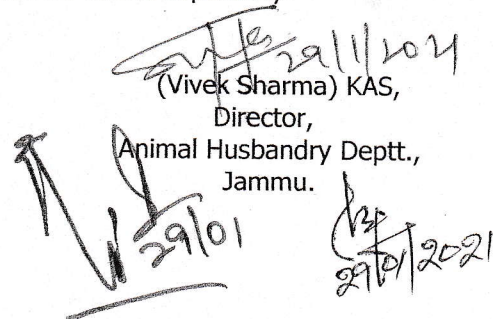 29/1/2021
(Vivek Sharma) KAS,
Director,
Animal Husbandry Deptt.,
Jammu.
29/01
29/01/2021